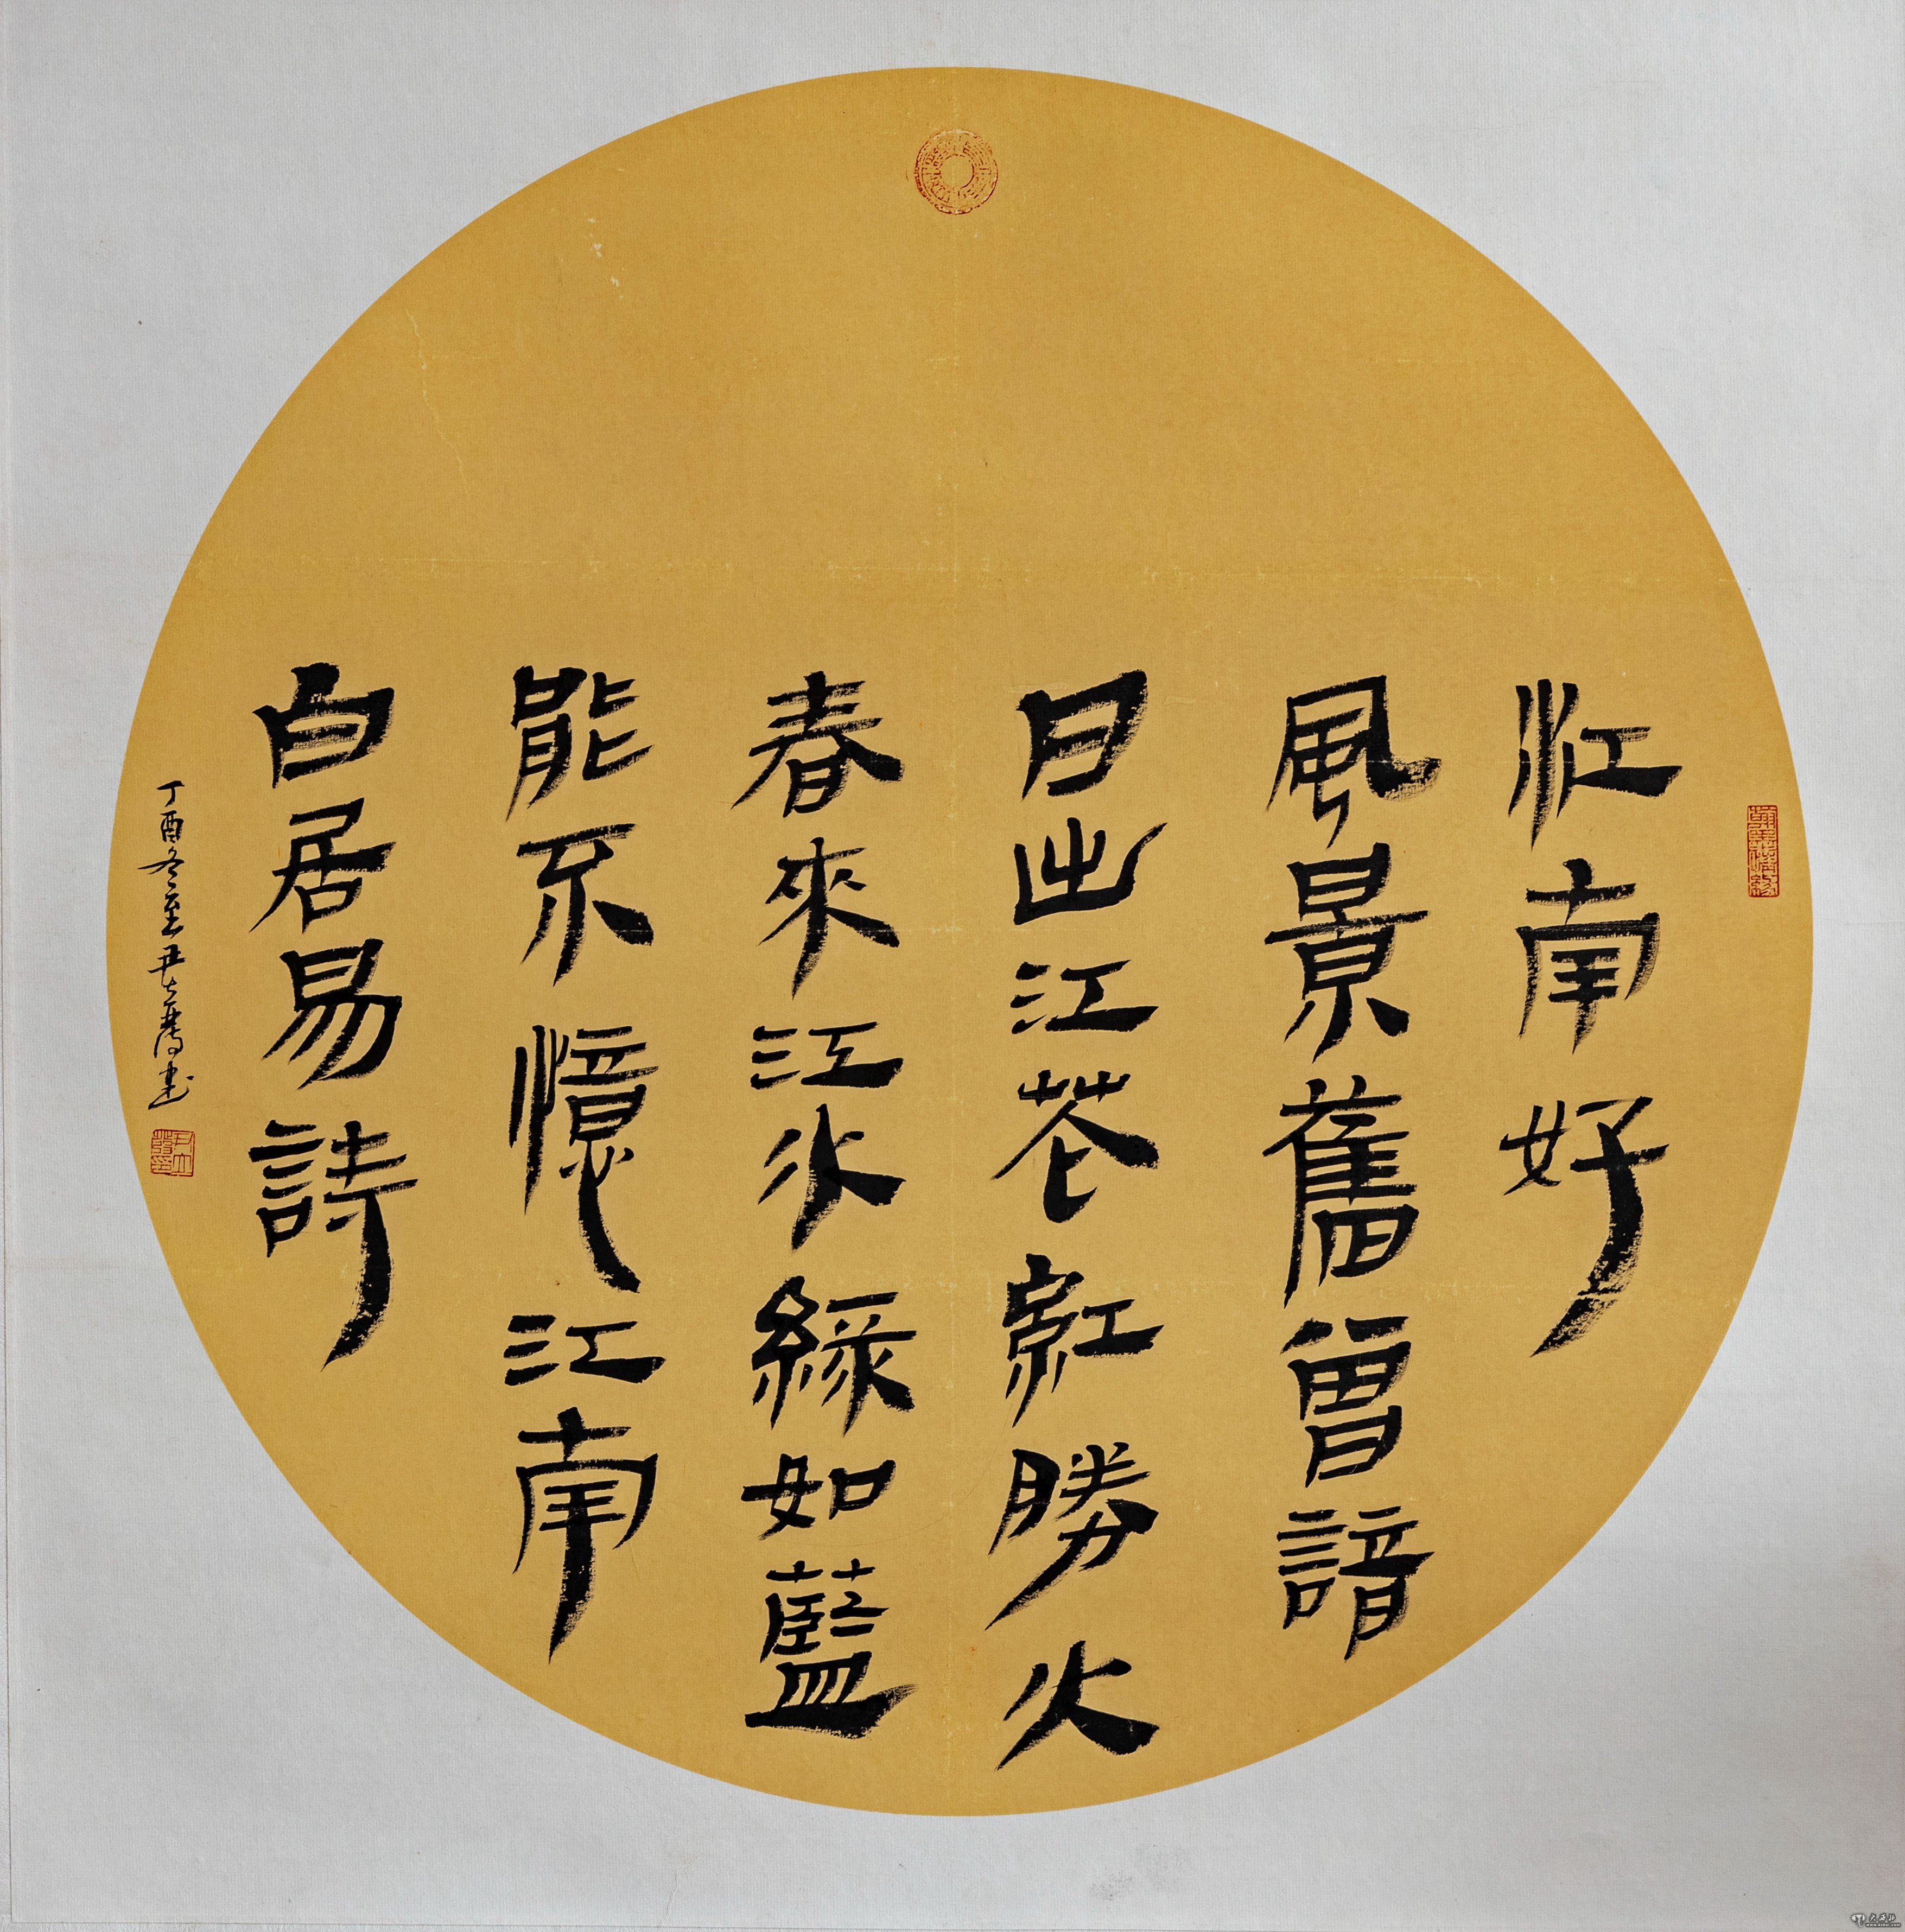 江南好
風景舊曾諳
日出江花紅勝火
春來江水緑如藍
能不憶江南
白居易詩
丁酉冬至尹大為書